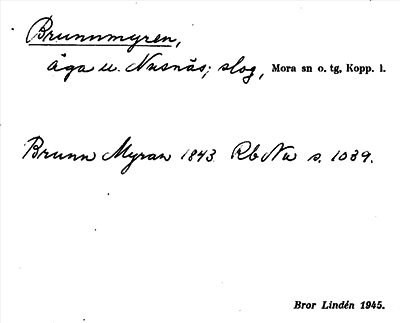 Brunnmyren,
äga u. Nusnäs; slog, Mora sn o. tg, Kopp. l.
Brunn Myran 1843 Rb Na s. 1039.
Bror Lindén 1945.